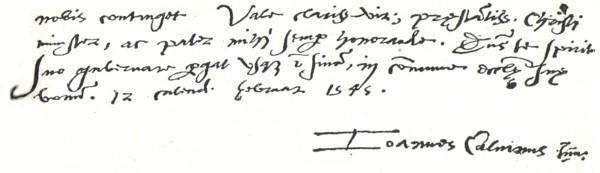 nobis continget. Vale clariss. vir, pręstātiss. Christi
minister, ac pater mihi semp honorande. Dn̄s te spiritu
suo gubernare pergat usq; ī finē, in cōmune eccłię suę
bonū. 12 calend. februar. 1545.
Ioannes Calvinus tuus.